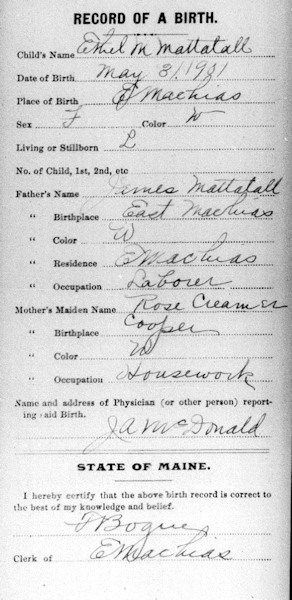 RECORD OF A BIRTH.
Child's Name Ethel M Mattatall
Date of Birth May 31, 1921
Place of Birth E Machias
Sex F Color W
Living or Stillborn L
No. of Child, 1st, 2nd, etc
Father's Name James Mattatall
" Birthplace East Machias
" Color W
" Residence E Machias
" Occupation Laborer
Mother's Maiden Name Rose Creamer
" Birthplace Cooper
" Color W
" Occupation Housework
Name and address of Physician (or other person) report-
ing said Birth.
J A McDonald
STATE OF MAINE.
I hereby certify that the above birth record is correct to
the best of my knowledge and belief.
Bogue
Clerk of E Machias